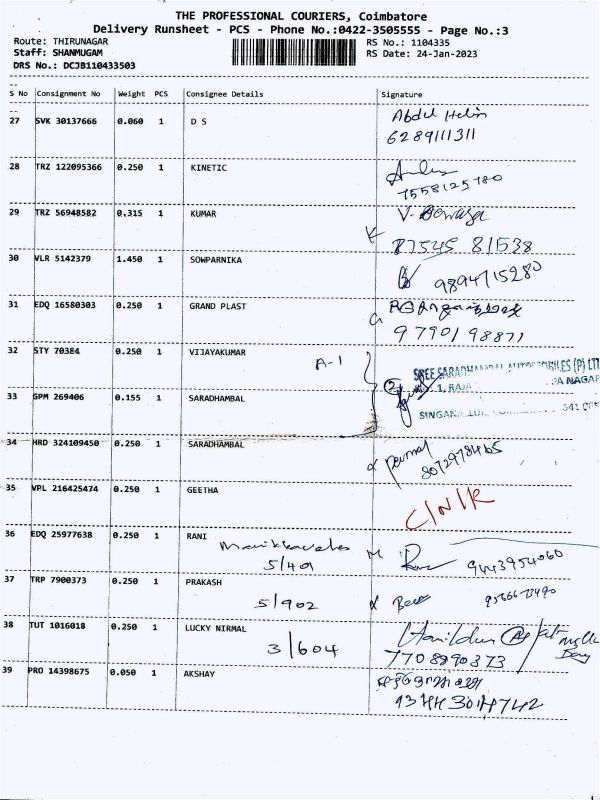 THE PROFESSIONAL COURIERS, Coimbatore
Delivery Runsheet - PCS - Phone No.:0422-3505555 - Page No.:3
Route: THIRUNAGAR RS No.: 1104335
Staff: SHANMUGAM RS Date: 24-Jan-2023
DRS No.: DCJB110433503
S No Consignment No Weight PCS Consignee Details Signature
27 SVK 30137666 0.060 1 D S Abdul
6289111311
28 TRZ 122095366 0.250 1 KINETIC
7558125780
29 TRZ 56948582 0.315 1 KUMAR V-
87545 81538
30 VLR 5142379 1.450 1 SOWPARNIKA
9894715280
31 EDQ 16580303 0.250 1 GRAND PLAST
9790198871
32 STY 70384 0.250 1 VIJAYAKUMAR A-1
SREE SARADHAMBAL AUTOMOBILES (P) LT
1, RAJA NAGAR
33 GPM 269406 0.155 1 SARADHAMBAL
SINGANALLUR, 641 005
34 HRD 324109450 0.250 1 SARADHAMBAL
8072978465
35 VPL 216425474 0.250 1 GEETHA C/N/R
36 EDQ 25977638 0.250 1 RANI
5/401 9443954060
37 TRP 7900373 0.250 1 PRAKASH
5/902
38 TUT 1016018 0.250 1 LUCKY NIRMAL
3/604 7708290373
39 PRO 14398675 0.050 1 AKSHAY